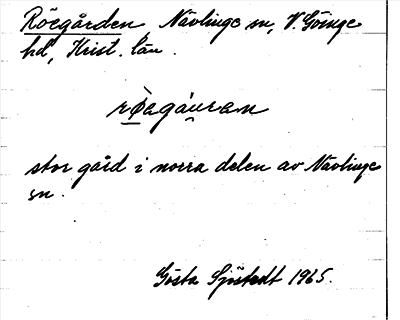 Röegården Nävlinge sn, V. Göinge
hd, Krist. län.
stor gård i norra delen av Nävlinge
sn.
Gösta Sjöstedt 1965.